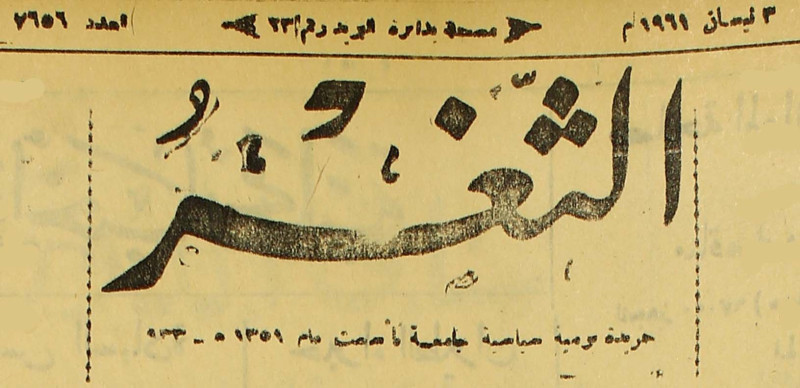 ٣ نيسان ١٩٦١ م مسجلة بدائرة البريد رقم /٢٣ العدد ٧٦٥٦
الثَّغْرُ
جريدة يومية سياسية جامعة تأسست عام ١٣٥١ ه - ٩٣٣